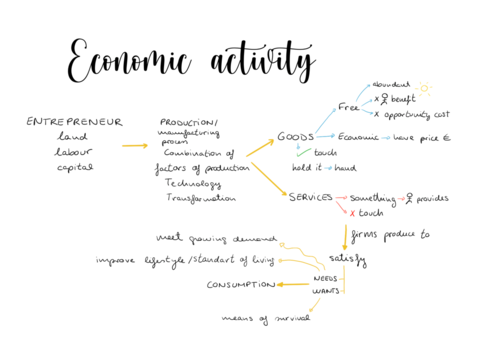 Economic activity
abundant
Free
x benefit
x opportunity cost
ENTREPRENEUR
land
labour
capital
PRODUCTION/
manufacturing
process
Combination of
factors of production
Technology
Transformation
GOODS
Economic → have price €
✓ touch
hold it → hand
SERVICES → something → provides
x touch
firms produce to
satisfy
NEEDS
WANTS
meet growing demand
improve lifestyle/standart of living
CONSUMPTION
means of survival